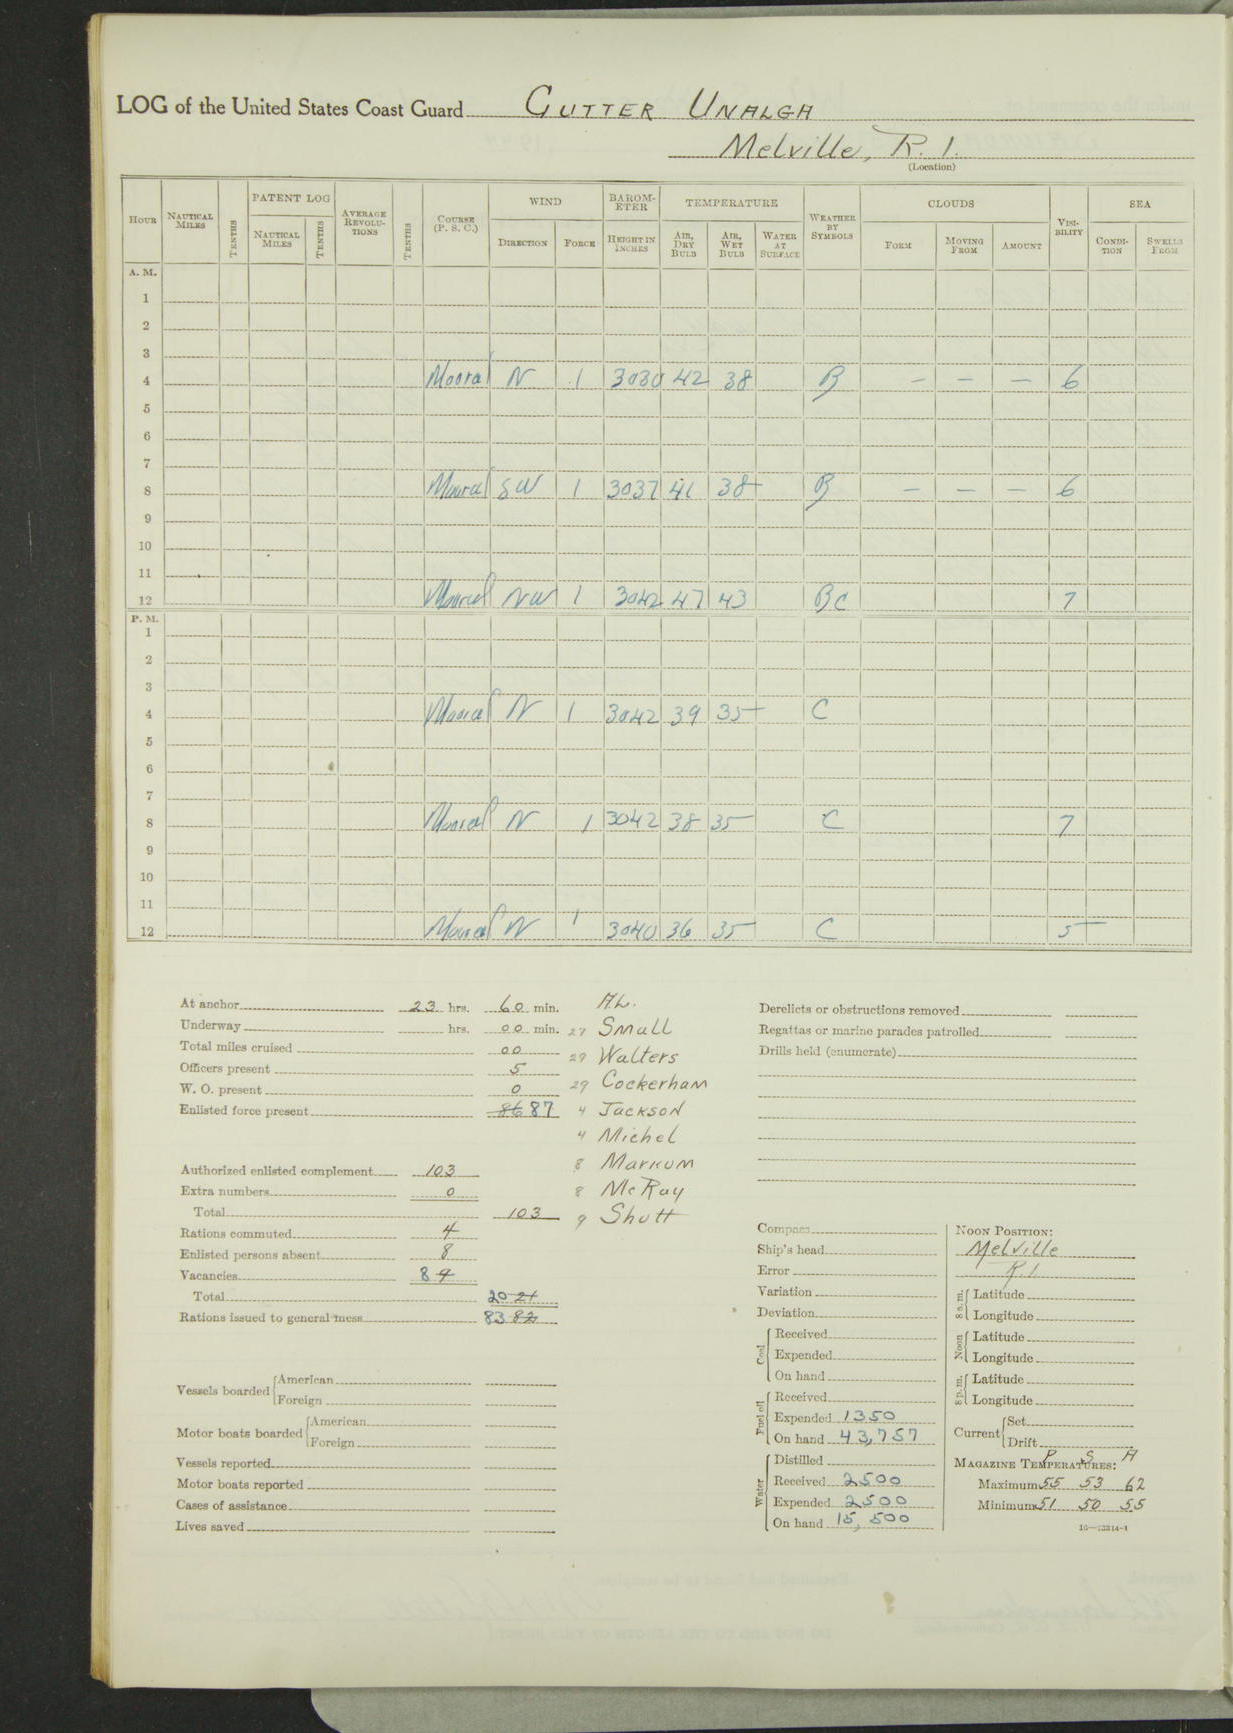 LOG of the United States Coast Guard CUTTER UNALGA
Melville, R. I.
(Location)
HOUR NAUTICAL MILES TENTHS PATENT LOG NAUTICAL MILES TENTHS AVERAGE REVOLUTIONS TENTHS COURSE (P. S. C.) WIND DIRECTION FORCE BAROMETER HEIGHT IN INCHES TEMPERATURE AIR, DRY BULB AIR, WET BULB WATER AT SURFACE WEATHER BY SYMBOLS CLOUDS FORM MOVING FROM AMOUNT VISIBILITY SEA CONDITION SWELLS FROM
A. M.
1
2
3
4 Moored N 1 3030 42 38 B – – – 6
5
6
7
8 Moored SW 1 3037 41 38 B – – – 6
9
10
11
12 Moored NW 1 3042 47 43 BC 7
P. M.
1
2
3
4 Moored N 1 3042 39 35 C
5
6
7
8 Moored N 1 3042 38 35 C 7
9
10
11
12 Moored N 1 3040 36 35 C 5
At anchor 23 hrs. 60 min.
Underway hrs. 00 min.
Total miles cruised 00
Officers present 5
W. O. present 0
Enlisted force present 86 87
Authorized enlisted complement 103
Extra numbers 0
Total 103
Rations commuted 4
Enlisted persons absent 8
Vacancies 8 9
Total 20 21
Rations issued to general mess 83 82
Vessels boarded American
Foreign
Motor boats boarded American
Foreign
Vessels reported
Motor boats reported
Cases of assistance
Lives saved
A.L.
27 Small
29 Walters
29 Cockerham
4 Jackson
4 Michel
8 Markum
8 McRay
9 Shutt
Derelicts or obstructions removed
Regattas or marine parades patrolled
Drills held (enumerate)
Compass
Ship's head
Error
Variation
Deviation
Coal Received
Expended
On hand
Fuel oil Received
Expended 1350
On hand 43,757
Water Distilled
Received 2500
Expended 2500
On hand 15,500
NOON POSITION:
Melville
R. I
8 a. m. Latitude
Longitude
Noon Latitude
Longitude
8 p. m. Latitude
Longitude
Current Set
Drift
P S A
MAGAZINE TEMPERATURES:
Maximum 55 53 62
Minimum 51 50 55